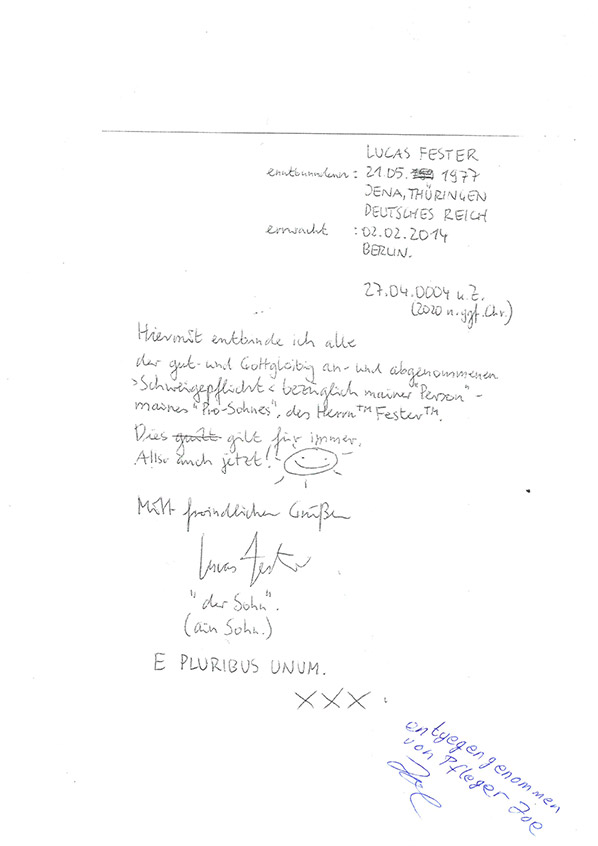 LUCAS FESTER
enntbunnden : 21.05. 1977
JENA, THÜRINGEN
DEUTSCHES REICH
errwacht : 02.02.2014
BERLIN.
27.04.0004 u.Z.
(2020 n. ggf. Chr.)
Hiermit entbinde ich alle
der gut- und Gottgloibig an- und abgenommenen
>Schweigepflicht< bezüglich mainer "Person" -
maines "Pro-Sohnes", des Herrn™ Fester™.
Dies guillt gilt für immer.
Allso auch jetzt!
Mitt froindlichen Grüßen
Lucas Fester
"der Sohn".
(ain Sohn.)
E PLURIBUS UNUM.
XXX.
entgegengenommen
von Pfleger Joe